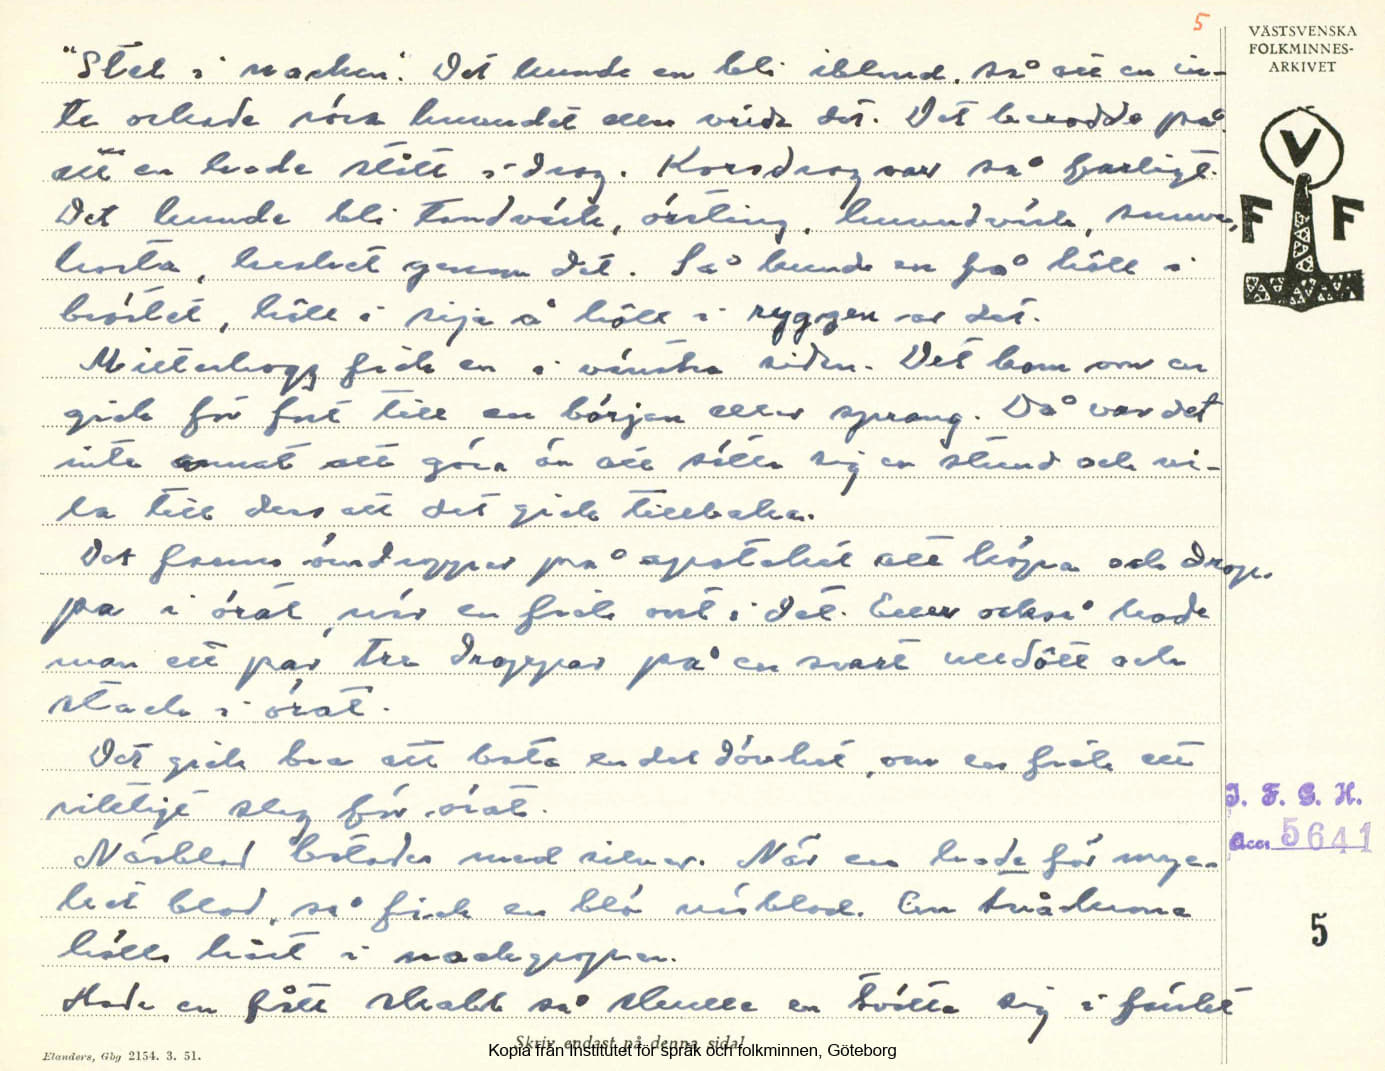 5
VÄSTSVENSKA
FOLKMINNES-
ARKIVET
V
F F
"Stel i nacken". Det kunde en bli ibland, så att en in-
te orkade röra huvudet eller vrida det. Det berodde på
att en hade stått i drag. Korsdrag var så farligt.
Det kunde bli tandvärk, örsting, huvudvärk, snuva,
hosta, heshet genom det. Så kunde en få håll i
bröstet, håll i sija å håll i ryggen av det.
Mjältehugg fick en i vänstra sidan. Det kom om en
gick för fort till en början eller sprang. Då var det
inte annat att göra än att sätta sig en stund och vi-
la till dess att det gick tillbaka.
Det fanns örndroppar på apoteket att köpa och drop-
pa i örat, när en fick ont i det. Eller också hade
man ett par, tre droppar på en svart ulltått och
stack i örat.
Det gick bra att bota endel dövhet, om en fick ett
riktigt slag för örat.
Näsblod botades med silver. När en hade för myc-
ket blod, så fick en blö näsblod. En tvåkrona
hölls hårt i nackgropen.
Hade en fått skabb så skulle en tvätta sig i färskt
J. F. G. H.
Acc: 5641
5
Elanders, Gbg 2154. 3. 51.
Skriv endast på denna sida!
Kopia från Institutet för språk och folkminnen, Göteborg